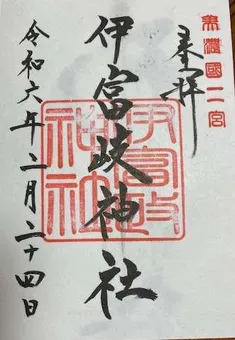 美濃國二宮
奉拝
伊富岐神社
伊富岐神社
令和六年二月二十四日